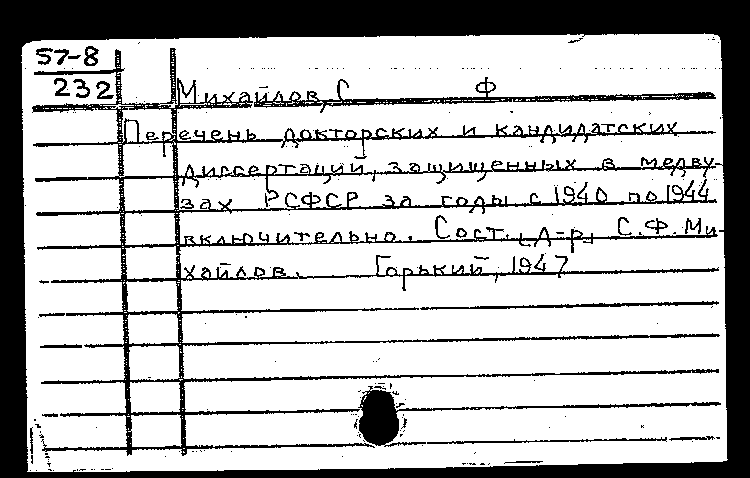 57-8
232
Михайлов, С Ф
Перечень докторских и кандидатских
диссертаций, защищенных в медву-
зах РСФСР за годы с 1940 по 1944
включительно. Сост. [д-р] С.Ф. Ми-
хайлов. Горький, 1947